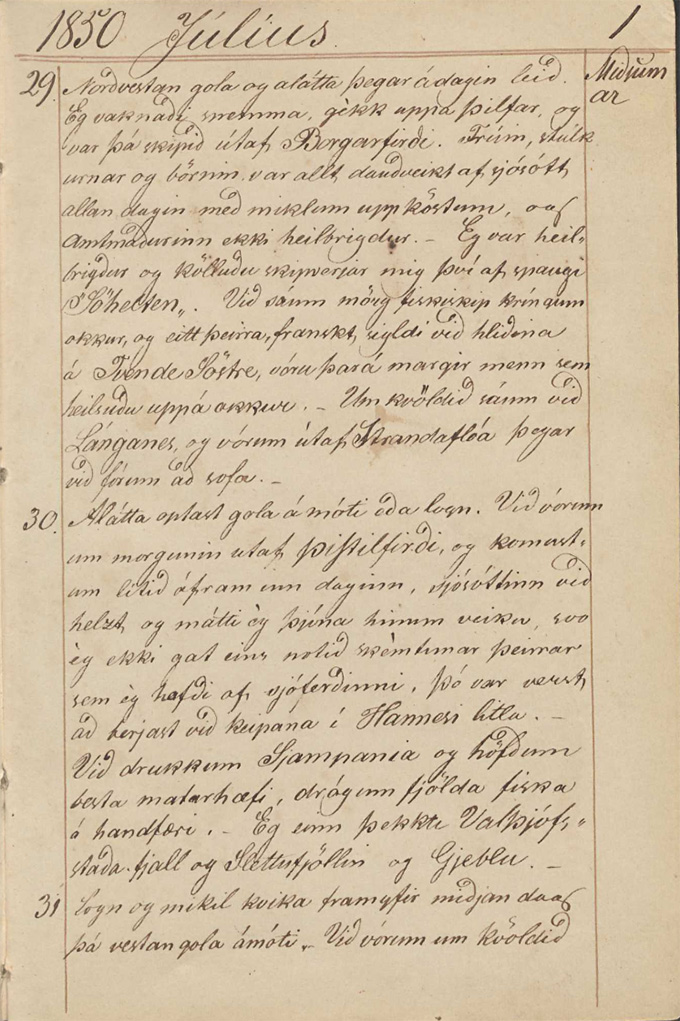 1850 Júlíus. 1
29. Nordvestan gola og alátta þegar ádagin leid. Midsum
Eg vaknadi snemma, gèkk uppá þilfar, og ar
var þá skipid útaf Borgarfirdi. Frúin, stúlk
urnar og börnin var allt daudveikt af sjósótt
allan dagin med miklum uppköstum, og
Amtmadurinn ekki heilbrigdur. – Eg var heil„
brigdur og kölludu skipverjar mig því af spaugi
"Söhelten„. Vid sáum mörg fiskiskip kríngum
okkur, og eitt þeirra, franskt, sigldi vid hlidina
á Tvende Söstre, vóru þará margir menn sem
heilsudu uppá okkur. – Um kvöldid sáum vid
Lánganes, og vórum útaf Strandaflóa þegar
vid fórum ad sofa. –
30. Alátta optast gola á móti eda logn. Vid vórum
um morgunin utaf þistilfirdi, og komust„
um litid áfram um daginn, sjósóttinn vid
helzt, og mátti èg þjóna hinum veiku, svo
èg ekki gat eins notid skèmtunar þeirrar
sem èg hafdi af sjóferdinni, þó var verst
ad berjast vid keipana í Hannesi litla. –
Vid drukkum Sjampania og höfdum
besta matarhæfi, drógum fjölda fiska
á handfæri. – Eg einn þekkti Valþjófs„
stada fjall og Slettufjöllin og Gjeblu. –
31 Logn og mikil kvika framyfir midjan dag
þá vestan gola ámóti. Vid vórum um kvöldid